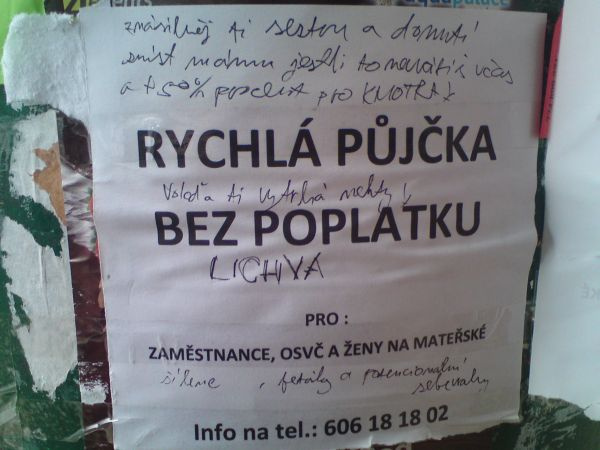 aquapalace
znásilněj ti sestru a donutí
sníst mámu jestli to nevrátíš včas
a + 50% pro KMOTRA!
RYCHLÁ PŮJČKA
Voloďa ti vytrhá nehty!
BEZ POPLATKU
LICHVA
PRO :
ZAMĚSTNANCE, OSVČ A ŽENY NA MATEŘSKÉ
šílence, feťáky a potencionální
sebevrahy
Info na tel.: 606 18 18 02